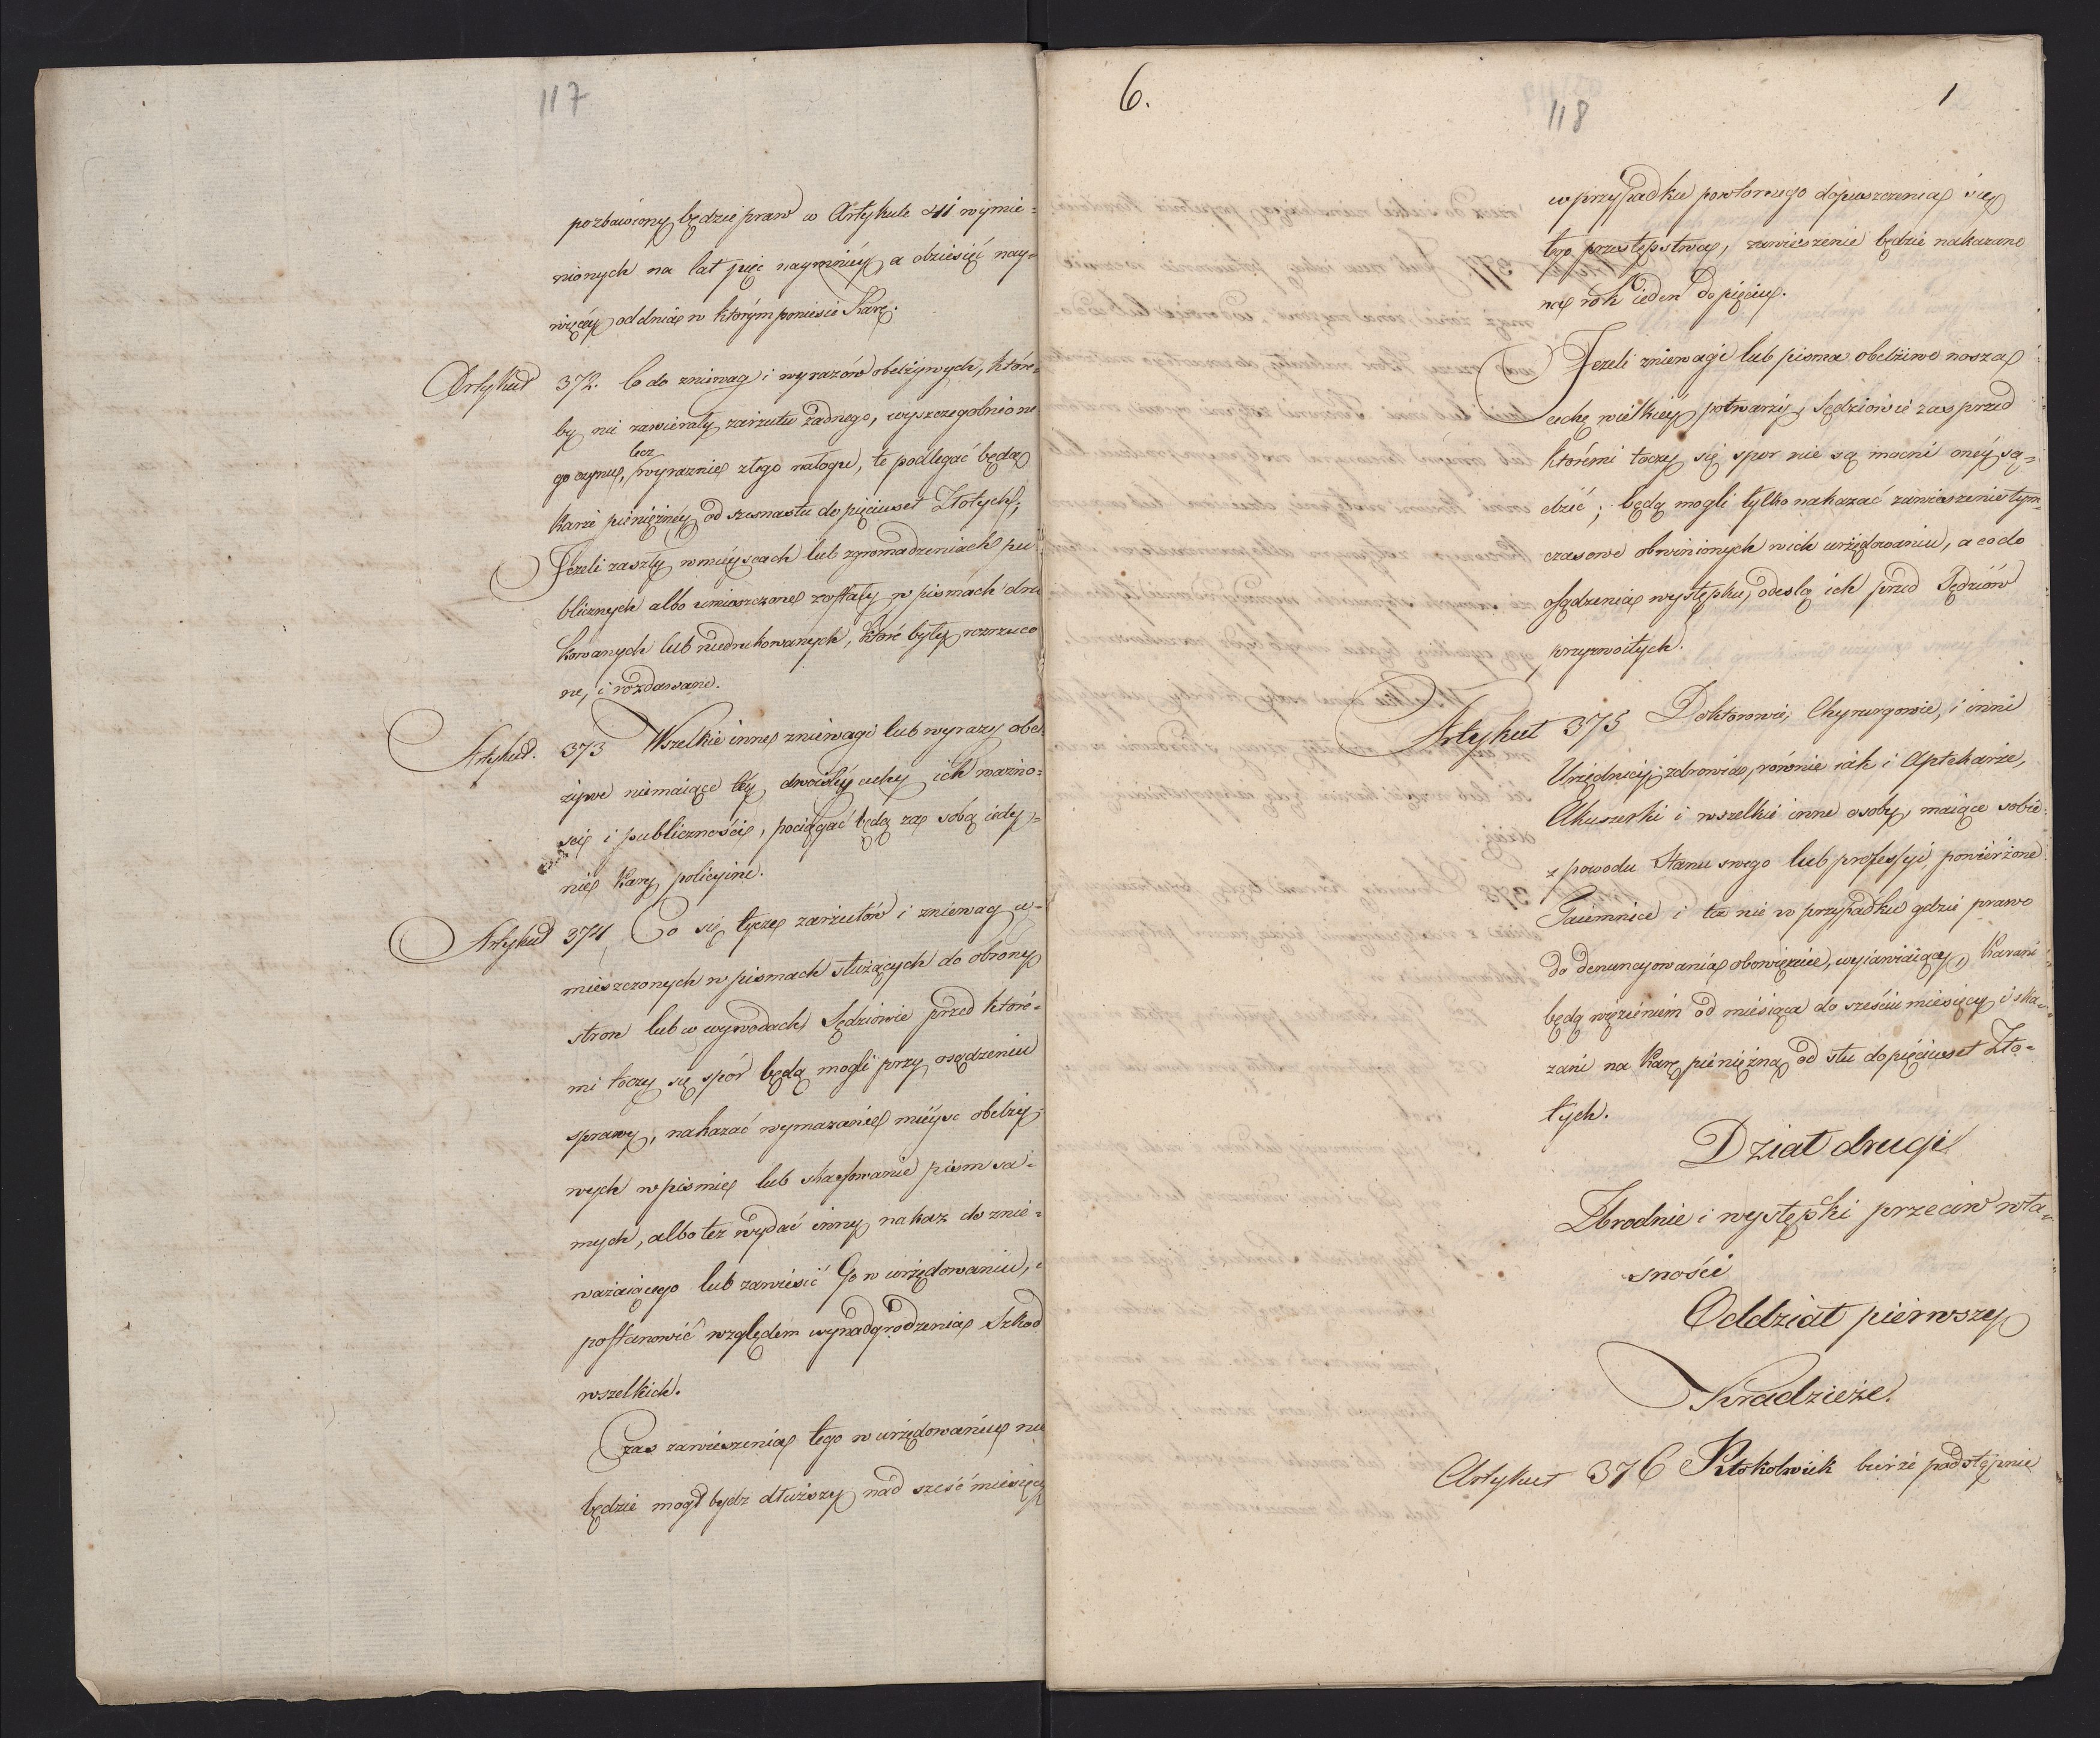 117
pozbawiony będzie praw w Artykule 411 wymie=
nionych na lat pięc naymniéy a dziesięć nay=
więcéy od dnia w którym poniesie Karę.
Artykuł 372. Co do zniewag i wyrazów obelżywych, które=
by nie zawierały zarzutu żadnego, wyszczegolnione
lecz
go czynu, wyraznie złego nałogu, te podlegać będą
karze pieniężnéy od szesnastu do pięciuset Złotych;
Jeżeli zaszły w mieyscach lub zgromadzeniach pu
blicznych albo umieszczone zostały w pismach dru
kowanych lub niedrukowanych, które były rozrzuco
ne, i rozdawane.
Artykuł. 373 Wszelkie inne zniewagi lub wyrazy obel
żywe niemaiące téy dwoistéy cechy ich ważno=
sci i publiczności, pociągać będą za sobą iedy=
nie Kary policyine.
Artykuł 374 Co się tycze zarzutów i zniewag u=
mieszczonych w pismach służących do obrony
stron lub w wywodach, Sędziowie przed które=
mi toczy się spór będą mogli przy osądzeniu
sprawy, nakazać wymazanie mieysc obelży=
wych w piśmie lub skassowanie pism sa=
mych, albo tez wydać inny nakaz do znie=
ważaiącego lub zawiesić Go w urzędowaniu, i
postanowić względem wynadgrodzenia Szkod
wszelkich.
Czas zawieszenia tego w urzędowaniu nie
będzie mogł bydz dłuższy nad sześć miesięcy
6.
118
1
w przypadku powtornego dopuszczenia się
tego przestępstwa, zawieszenie będzie nakazane
na rok ieden do pięciu.
Jezeli zniewagi lub pisma obelżiwe noszą
cechę wielkiéy potwarzy, Sędziowie zas przed
któremi toczy się spor nie są mocni onéy są=
dzić; będą mogli tylko nakazać zawieszenie tym=
czasowe obwinionych w ich urzędowaniu, a co do
osądzenia występku, odeslą ich przed Sędziów
przyzwoitych.
Artykuł 375 Doktorowie, Chyrurgowie, i inni
Urzędnicy zdrowia, rownie iak i Aptekarze,
Akuszerki i wszelkie inne osoby, maiące sobie
z powodu Stanu swego lub professyi powierzone
Taiemnice i te nie w przypadku gdzie prawo
do denuncyowania obowięzuie, wyiawiaiący, karani
będą więzieniem od miesiąca do sześciu miesięcy i ska=
zani na karę pieniężną od stu do pięciuset Zło=
tych.
Dział drugi
Zbrodnie i występki przeciw wła=
sności
Oddział pierwszy
Kradzieże.
Artykuł 376 Ktokolwiek bierze podstępnie